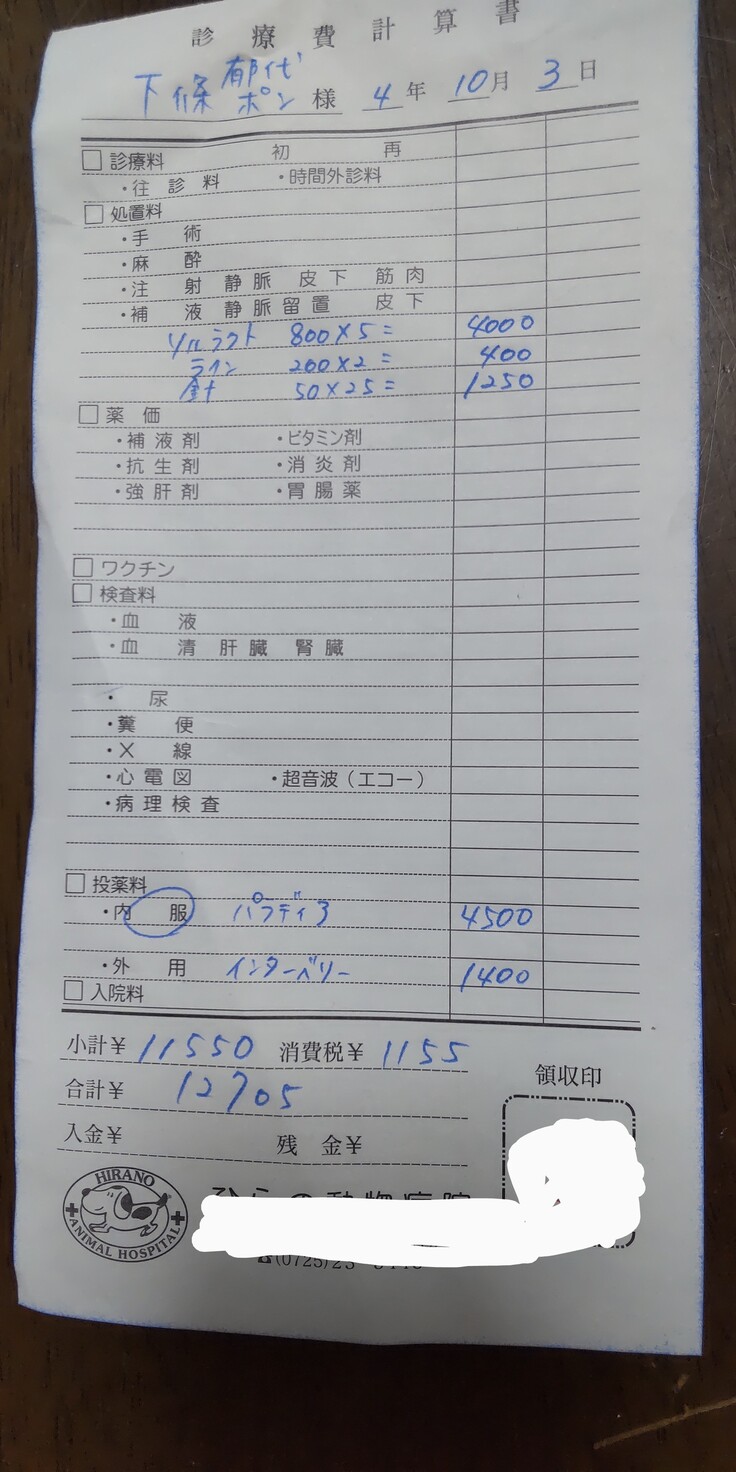 診療費計算書
下條 郁代 ポン 様 4年 10月 3日
□ 診療料 初 再
・往診料 ・時間外診料
□ 処置料
・手術
・麻酔
・注射 静脈 皮下 筋肉
・補液 静脈留置 皮下
ソルラクト 800×5= 4000
ライン 200×2= 400
針 50×25= 1250
□ 薬価
・補液剤 ・ビタミン剤
・抗生剤 ・消炎剤
・強肝剤 ・胃腸薬
□ ワクチン
□ 検査料
・血液
・血清 肝臓 腎臓
・尿
・糞便
・X線
・心電図 ・超音波(エコー)
・病理検査
□ 投薬料
・内服 パラディ3 4500
・外用 インターベリー 1400
□ 入院料
小計¥ 11550 消費税¥ 1155
合計¥ 12705
領収印
入金¥ 残金¥
HIRANO
ANIMAL HOSPITAL
☎(0725)23